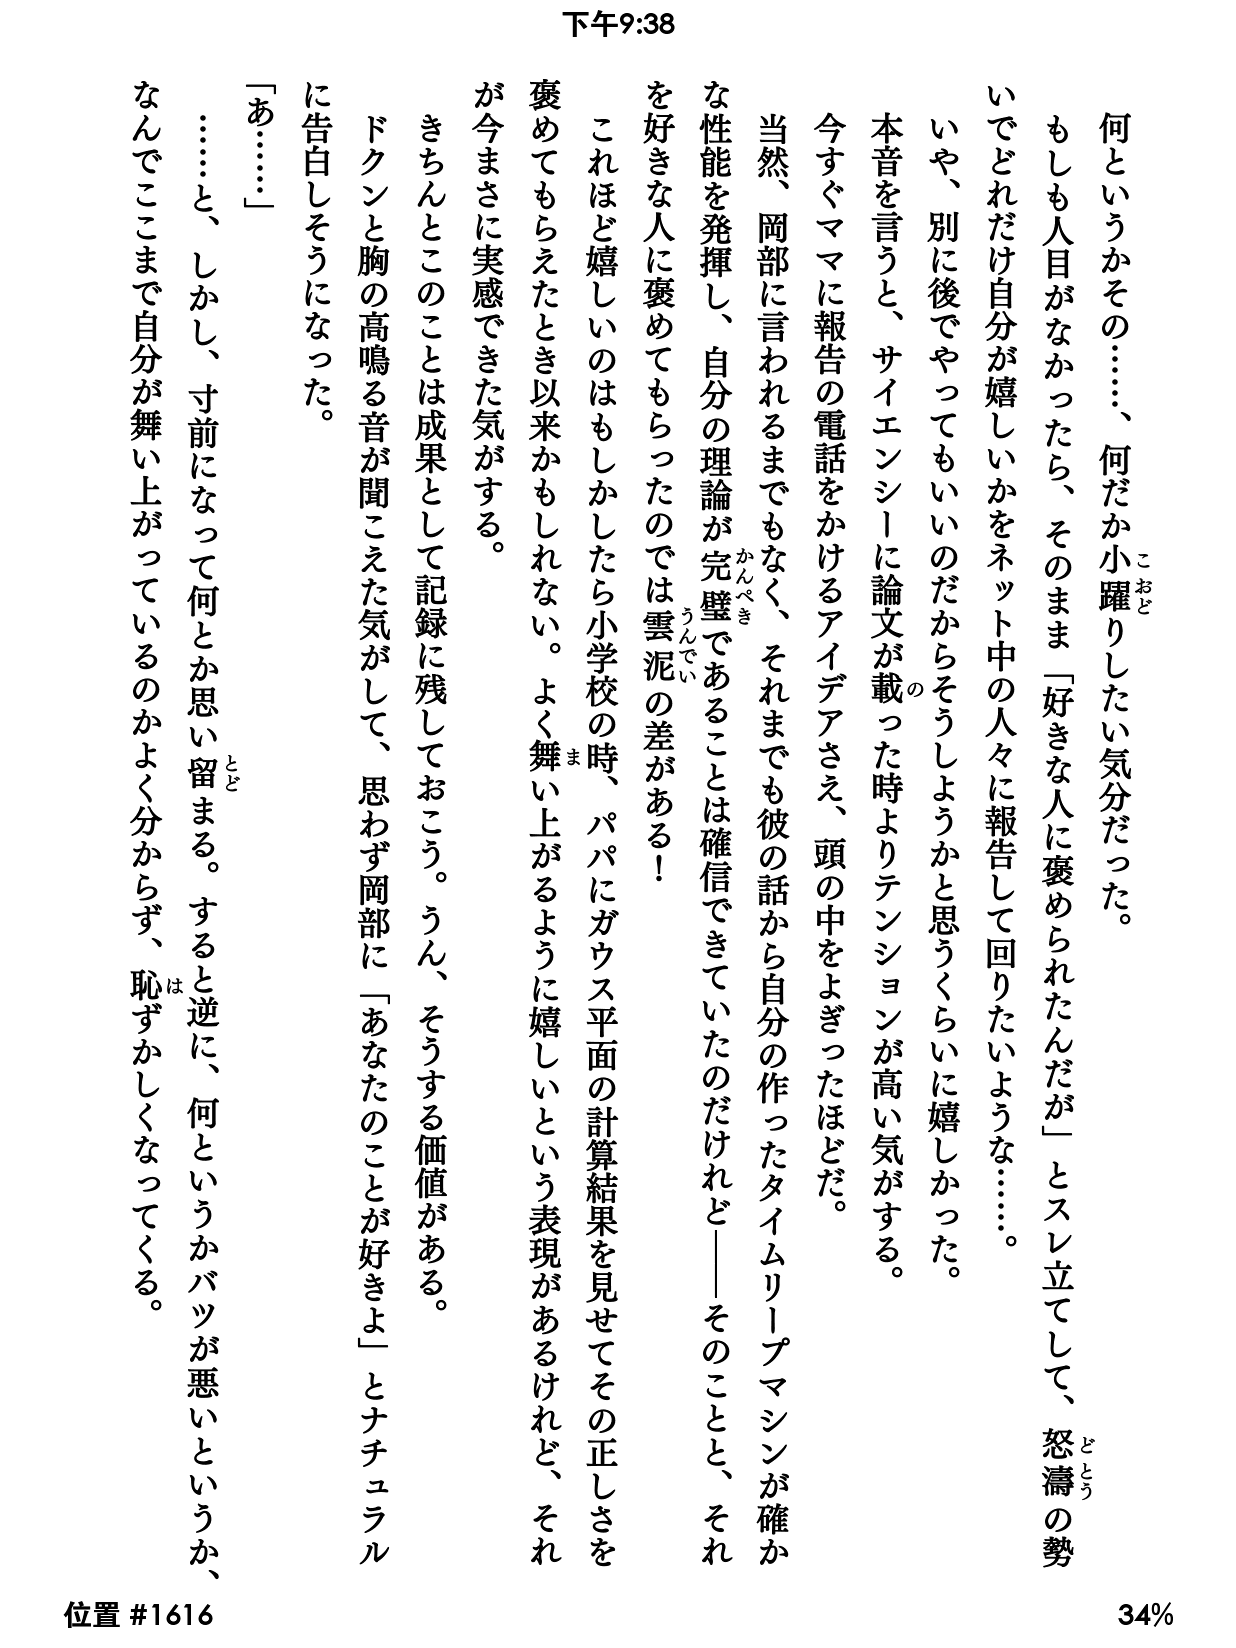 下午9:38
何というかその……、何だか小躍りしたい気分だった。
もしも人目がなかったら、そのまま「好きな人に褒められたんだが」とスレ立てして、怒濤の勢
いでどれだけ自分が嬉しいかをネット中の人々に報告して回りたいような……。
いや、別に後でやってもいいのだからそうしようかと思うくらいに嬉しかった。
本音を言うと、サイエンシーに論文が載った時よりテンションが高い気がする。
今すぐママに報告の電話をかけるアイデアさえ、頭の中をよぎったほどだ。
当然、岡部に言われるまでもなく、それまでも彼の話から自分の作ったタイムリープマシンが確か
な性能を発揮し、自分の理論が完璧であることは確信できていたのだけれど――そのことと、それ
を好きな人に褒めてもらったのでは雲泥の差がある！
これほど嬉しいのはもしかしたら小学校の時、パパにガウス平面の計算結果を見せてその正しさを
褒めてもらえたとき以来かもしれない。よく舞い上がるように嬉しいという表現があるけれど、それ
が今まさに実感できた気がする。
きちんとこのことは成果として記録に残しておこう。うん、そうする価値がある。
ドクンと胸の高鳴る音が聞こえた気がして、思わず岡部に「あなたのことが好きよ」とナチュラル
に告白しそうになった。
「あ……」
……と、しかし、寸前になって何とか思い留まる。すると逆に、何というかバツが悪いというか、
なんでここまで自分が舞い上がっているのかよく分からず、恥ずかしくなってくる。
位置 #1616
34%